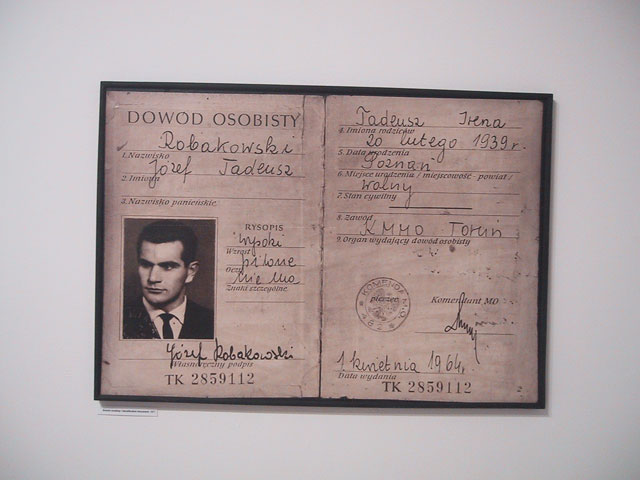 DOWÓD OSOBISTY
Robakowski
1. Nazwisko
Józef Tadeusz
2. Imiona
3. Nazwisko panieńskie
RYSOPIS
wysoki
Wzrost
piwne
Oczy
nie ma
Znaki szczególne
Józef Robakowski
Własnoręczny podpis
TK 2859112
Tadeusz Irena
4. Imiona rodziców
20 lutego 1939 r.
5. Data urodzenia
Poznań
6. Miejsce urodzenia / miejscowość - powiat /
wolny
7. Stan cywilny
8. zawód
KMMO Toruń
9. Organ wydający dowód osobisty
KOMENDA M.O.
pieczęć
Komendant MO
1. kwietnia 1964 r.
Data wydania
TK 2859112
2